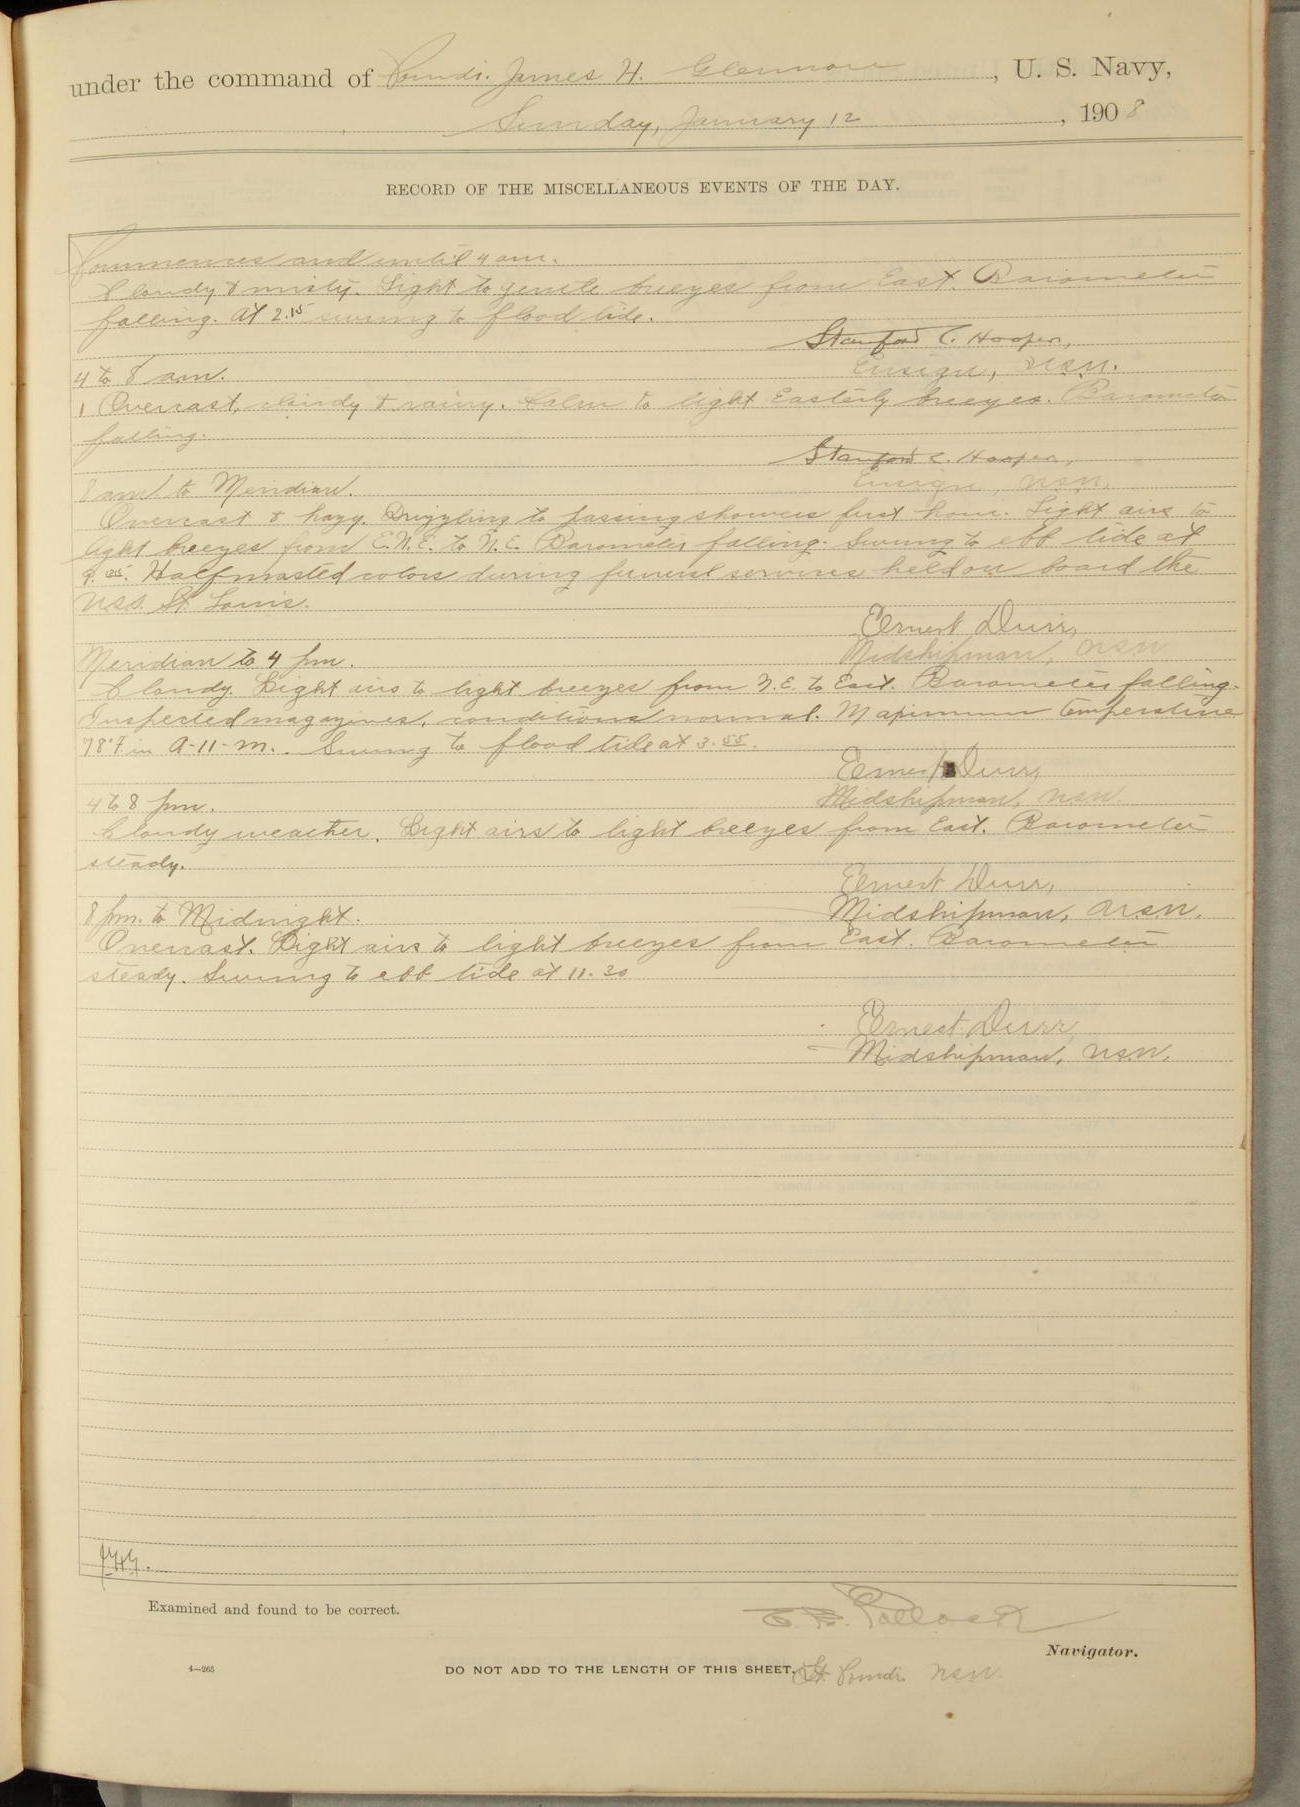 under the command of Comdr. James H. Glennon, U. S. Navy,
Sunday, January 12, 1908
RECORD OF THE MISCELLANEOUS EVENTS OF THE DAY.
Commences and until 4 am.
Cloudy & misty. Light to gentle breezes from East. Barometer
falling. At 2.15 swung to flood tide.
Stanford C. Hooper,
Ensign, USN.
4 to 8 am.
Overcast, cloudy & rainy. Calm to light Easterly breezes. Barometer
falling.
Stanford C. Hooper,
Ensign, USN.
8 am. to Meridian.
Overcast & hazy. Drizzling to passing showers first hour. Light airs to
light breezes from E.N.E. to N.E. Barometer falling. Swung to ebb tide at
9. Half masted colors during funeral services held on board the
USS. St Louis.
Ernest Durr,
Midshipman, USN
Meridian to 4 pm.
Cloudy. Light airs to light breezes from N.E. to East. Barometer falling.
Inspected magazines, conditions normal. Maximum temperature
98°F in A-11-M. Swung to flood tide at 3.55.
Ernest Durr,
Midshipman, USN.
4 to 8 pm.
Cloudy weather. Light airs to light breezes from East. Barometer
steady.
Ernest Durr,
Midshipman, USN.
8 pm. to Midnight.
Overcast. Light airs to light breezes from East. Barometer
steady. Swung to ebb tide at 11.30
Ernest Durr,
Midshipman, USN.
Examined and found to be correct.
E. E. Pollock
Navigator.
4—265
DO NOT ADD TO THE LENGTH OF THIS SHEET.
Lt. Comdr. USN.